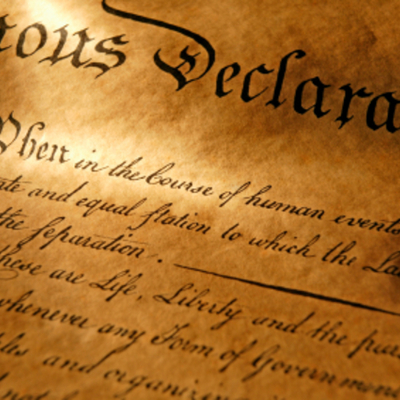 ous Declara
When in the Course of human events
ate and equal station to which the La
the separation.
hese are Life, Liberty and the pur
whenever any Form of Governmen
les and organizing